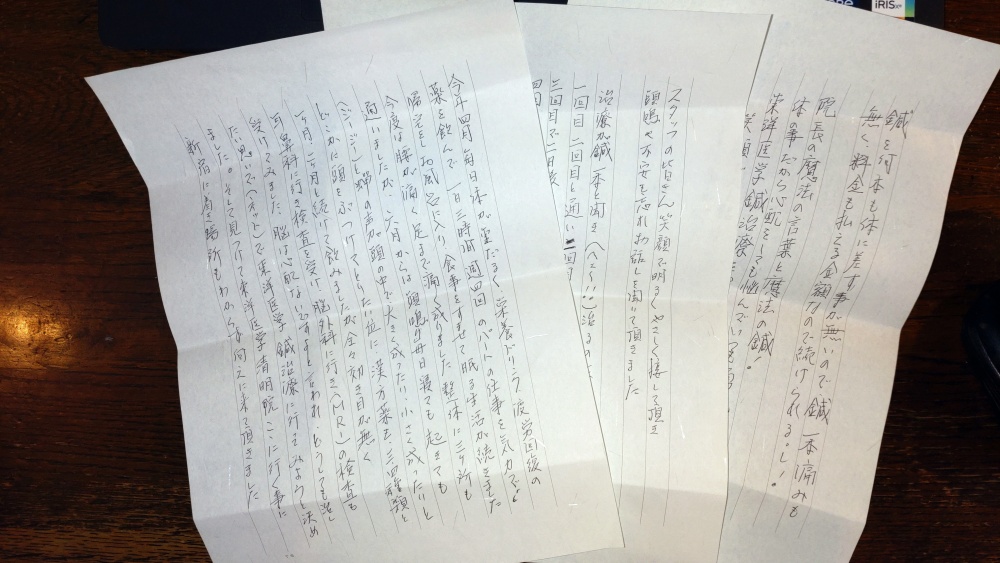 今年四月毎日体が重だるく 栄養ドリンク 疲労回復の
薬を飲んで 一日三時間 週四回 のパートの仕事を気力でし
帰宅をしお風呂に入り食事をすませて眠る生活が続きました
今度は腰が痛く足まで痛く成りました整体に三ヶ所も
通いましたが 六月からは 頭鳴が毎日寝ても 起きても
(ジージー)と蝉の声が頭の中で大きく成ったり 小さく成ったりと
どこかに頭をぶつけてとりたい位に 漢方薬も 三種類と
一ヶ月 二ヶ月も続けて飲みましたが全々効き目が無く
耳鼻科に行き検査を受け 脳外科に行き(MR)の検査も
受けてみました 脳は心配ないですよと言われ どうしても治し
たい思いで(ネット)で東洋医学 鍼治療に行ってみようと決め
ました。そして見つけて東洋医学清明院 ここに行く事に
新宿に着き場所もわからず向えに来て頂きました
スタッフの皆さん笑顔で明るくやさしく接して頂き
頭鳴や不安を忘れお話しを聞いて頂きました
治療が鍼一本と聞き(へえ〜!!)治るの
一回目 二回目と通い 三回
三回目で二日
四回
鍼を何本も体に差す事が無いので 鍼一本痛みも
無く 料金も払える金額なので続けられる。し!
院長の魔法の言葉と魔法の鍼
体の事だから心配をしても悩んで
東洋医学鍼治療
笑顔
iRIS